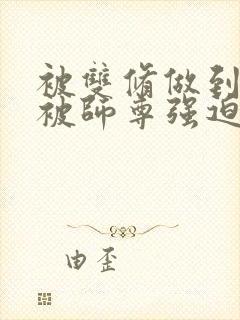 被雙脩做到
被師尊强迫
由歪